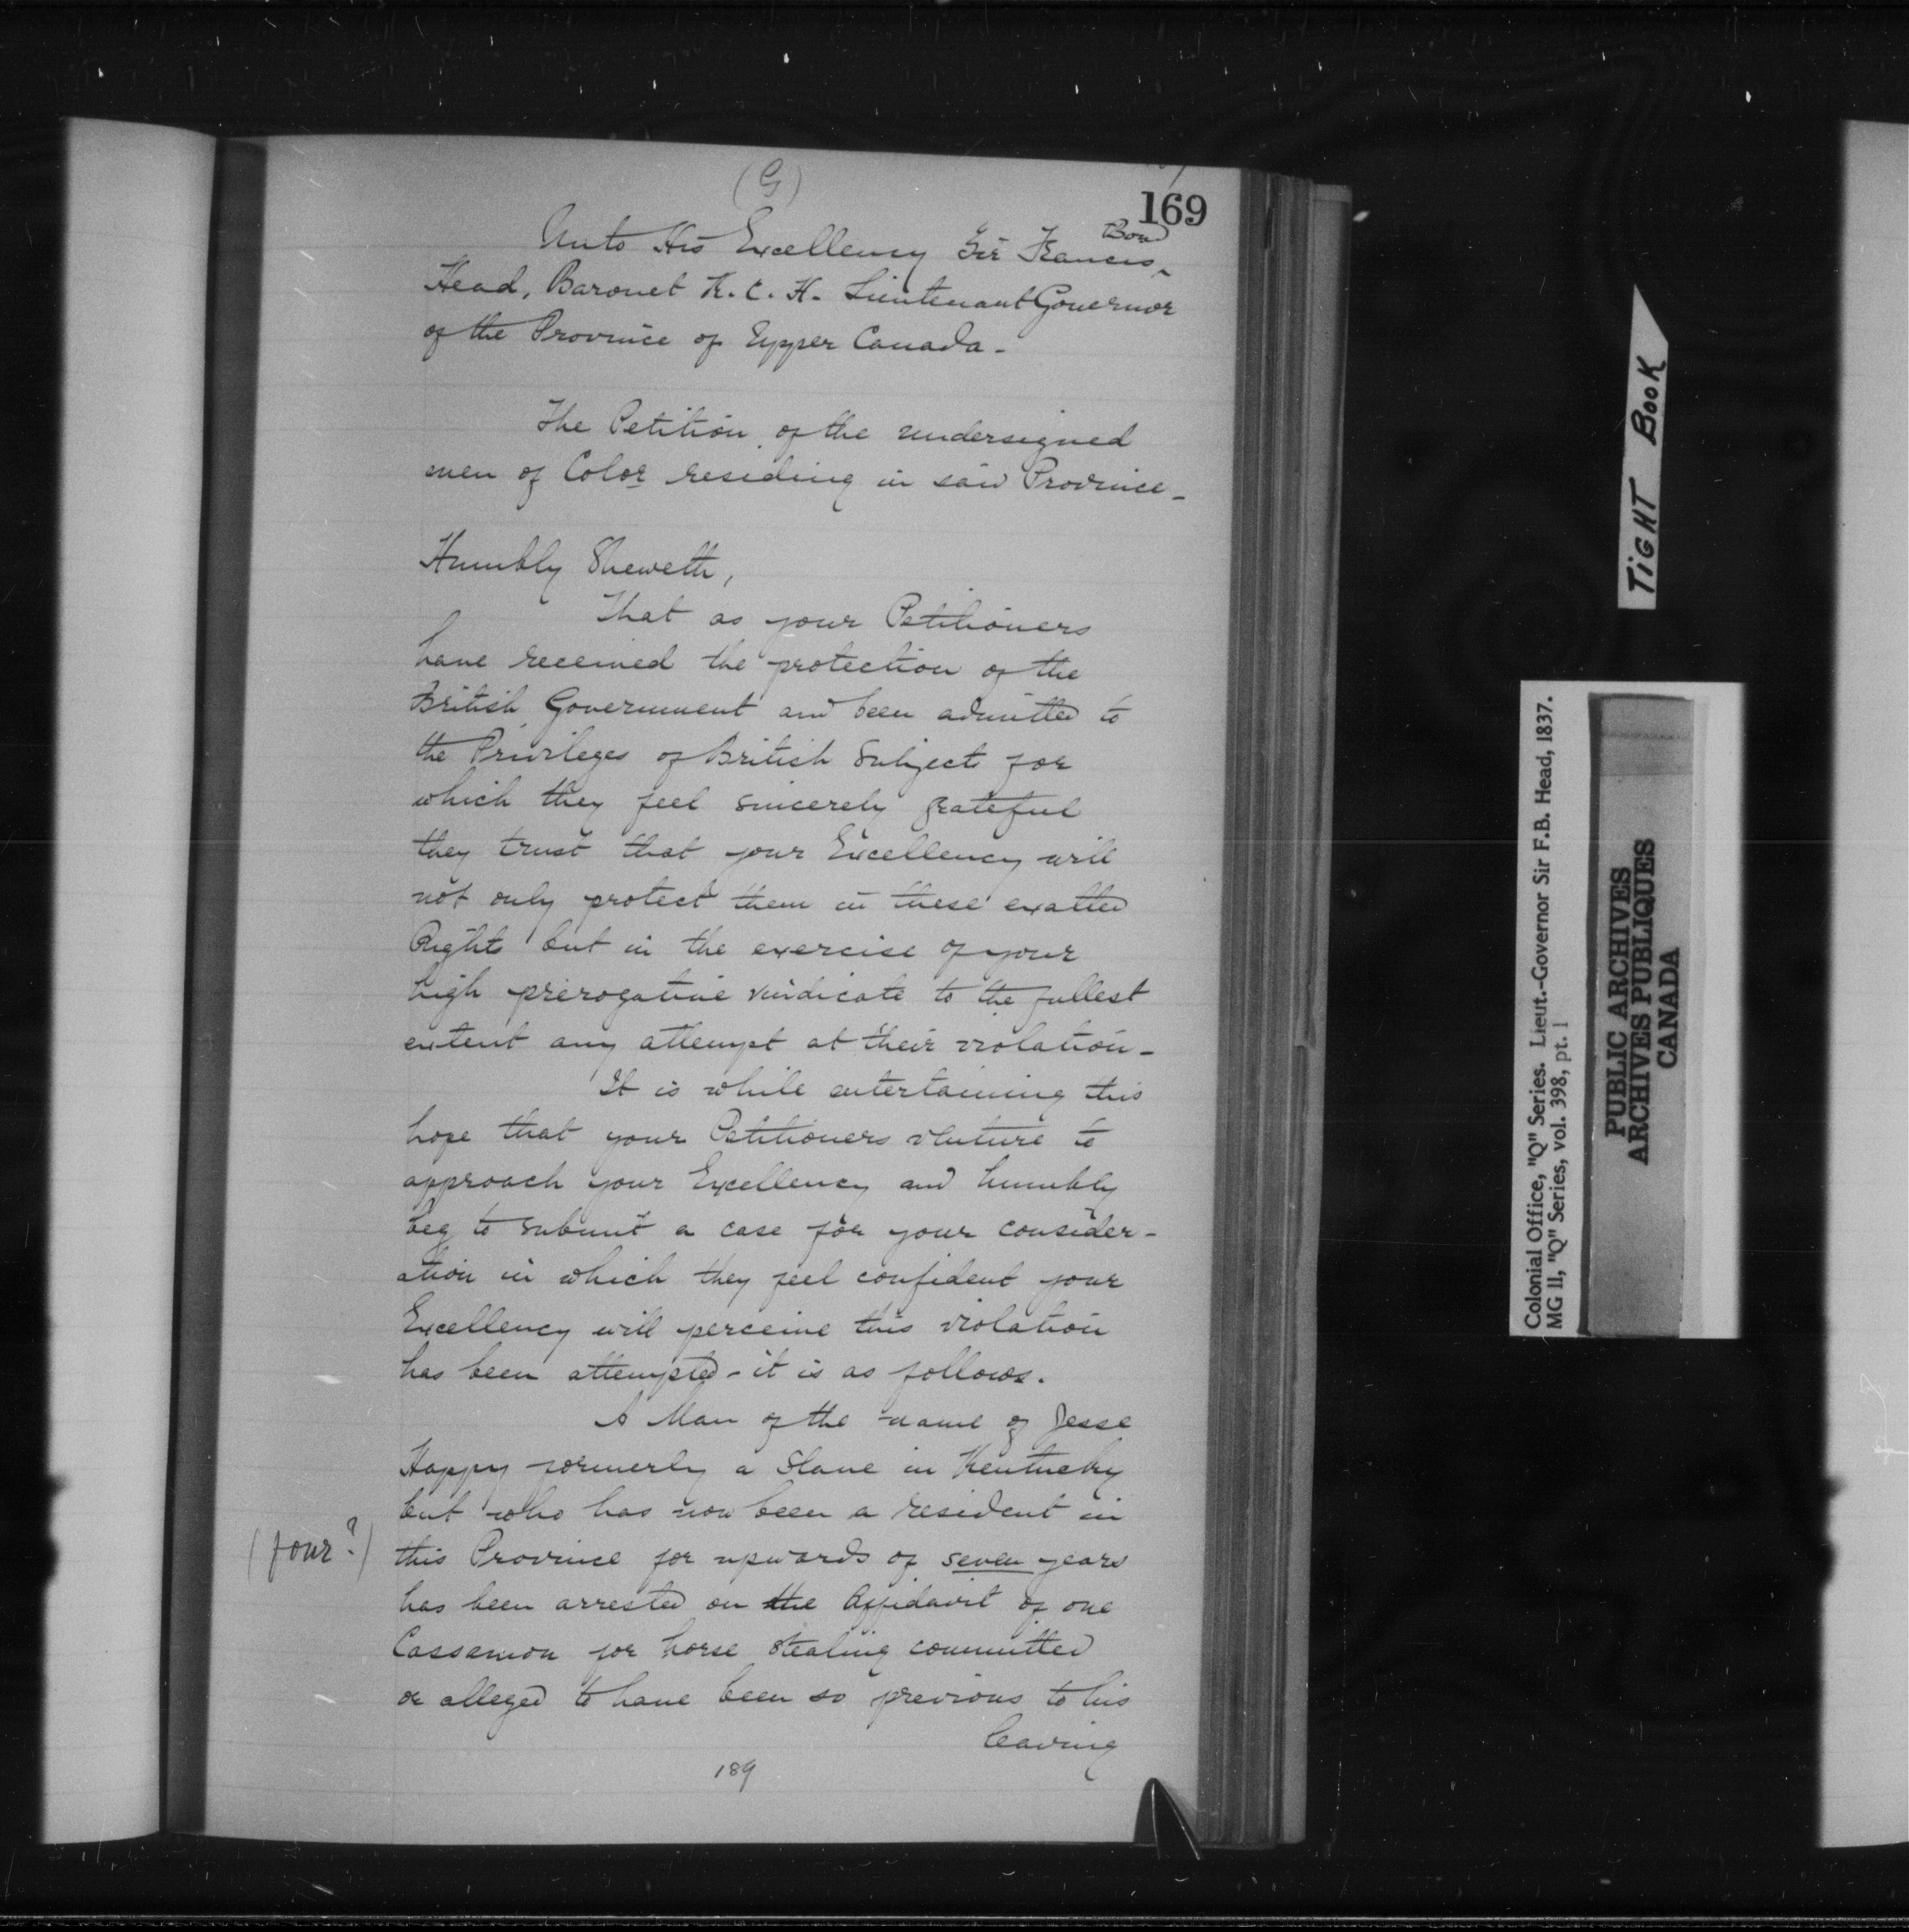 (G)
169
Unto His Excellency Sir Francis ^Bond
Head, Baronet K. C. H. Lieutenant Governor
of the Province of Upper Canada -
The Petition of the undersigned
men of Color residing in said Province -
Humbly Sheweth,
That as your Petitioners
have received the protection of the
British Government and been admitted to
the Privileges of British Subjects for
which they feel sincerely grateful
they trust that your Excellency will
not only protect them in these exalted
Rights but in the exercise of your
high prerogative vindicate to the fullest
extent any attempt at their violation -
It is while entertaining this
hope that your Petitioners venture to
approach your Excellency and humbly
beg to submit a case for your consider-
ation in which they feel confident your
Excellency will perceive this violation
has been attempted - it is as follows.
A Man of the name of Jesse
Happy formerly a Slave in Kentucky
but who has now been a resident in
(four?) this Province for upwards of seven years
has been arrested on the Affidavit of one
Cassamon for horse stealing committed
or alleged to have been so previous to his
leaving
189
TiGHT BOOK
Colonial Office, "Q" Series. Lieut.-Governor Sir F.B. Head, 1837.
MG 11, "Q" Series, vol. 398, pt. 1
PUBLIC ARCHIVES
ARCHIVES PUBLIQUES
CANADA